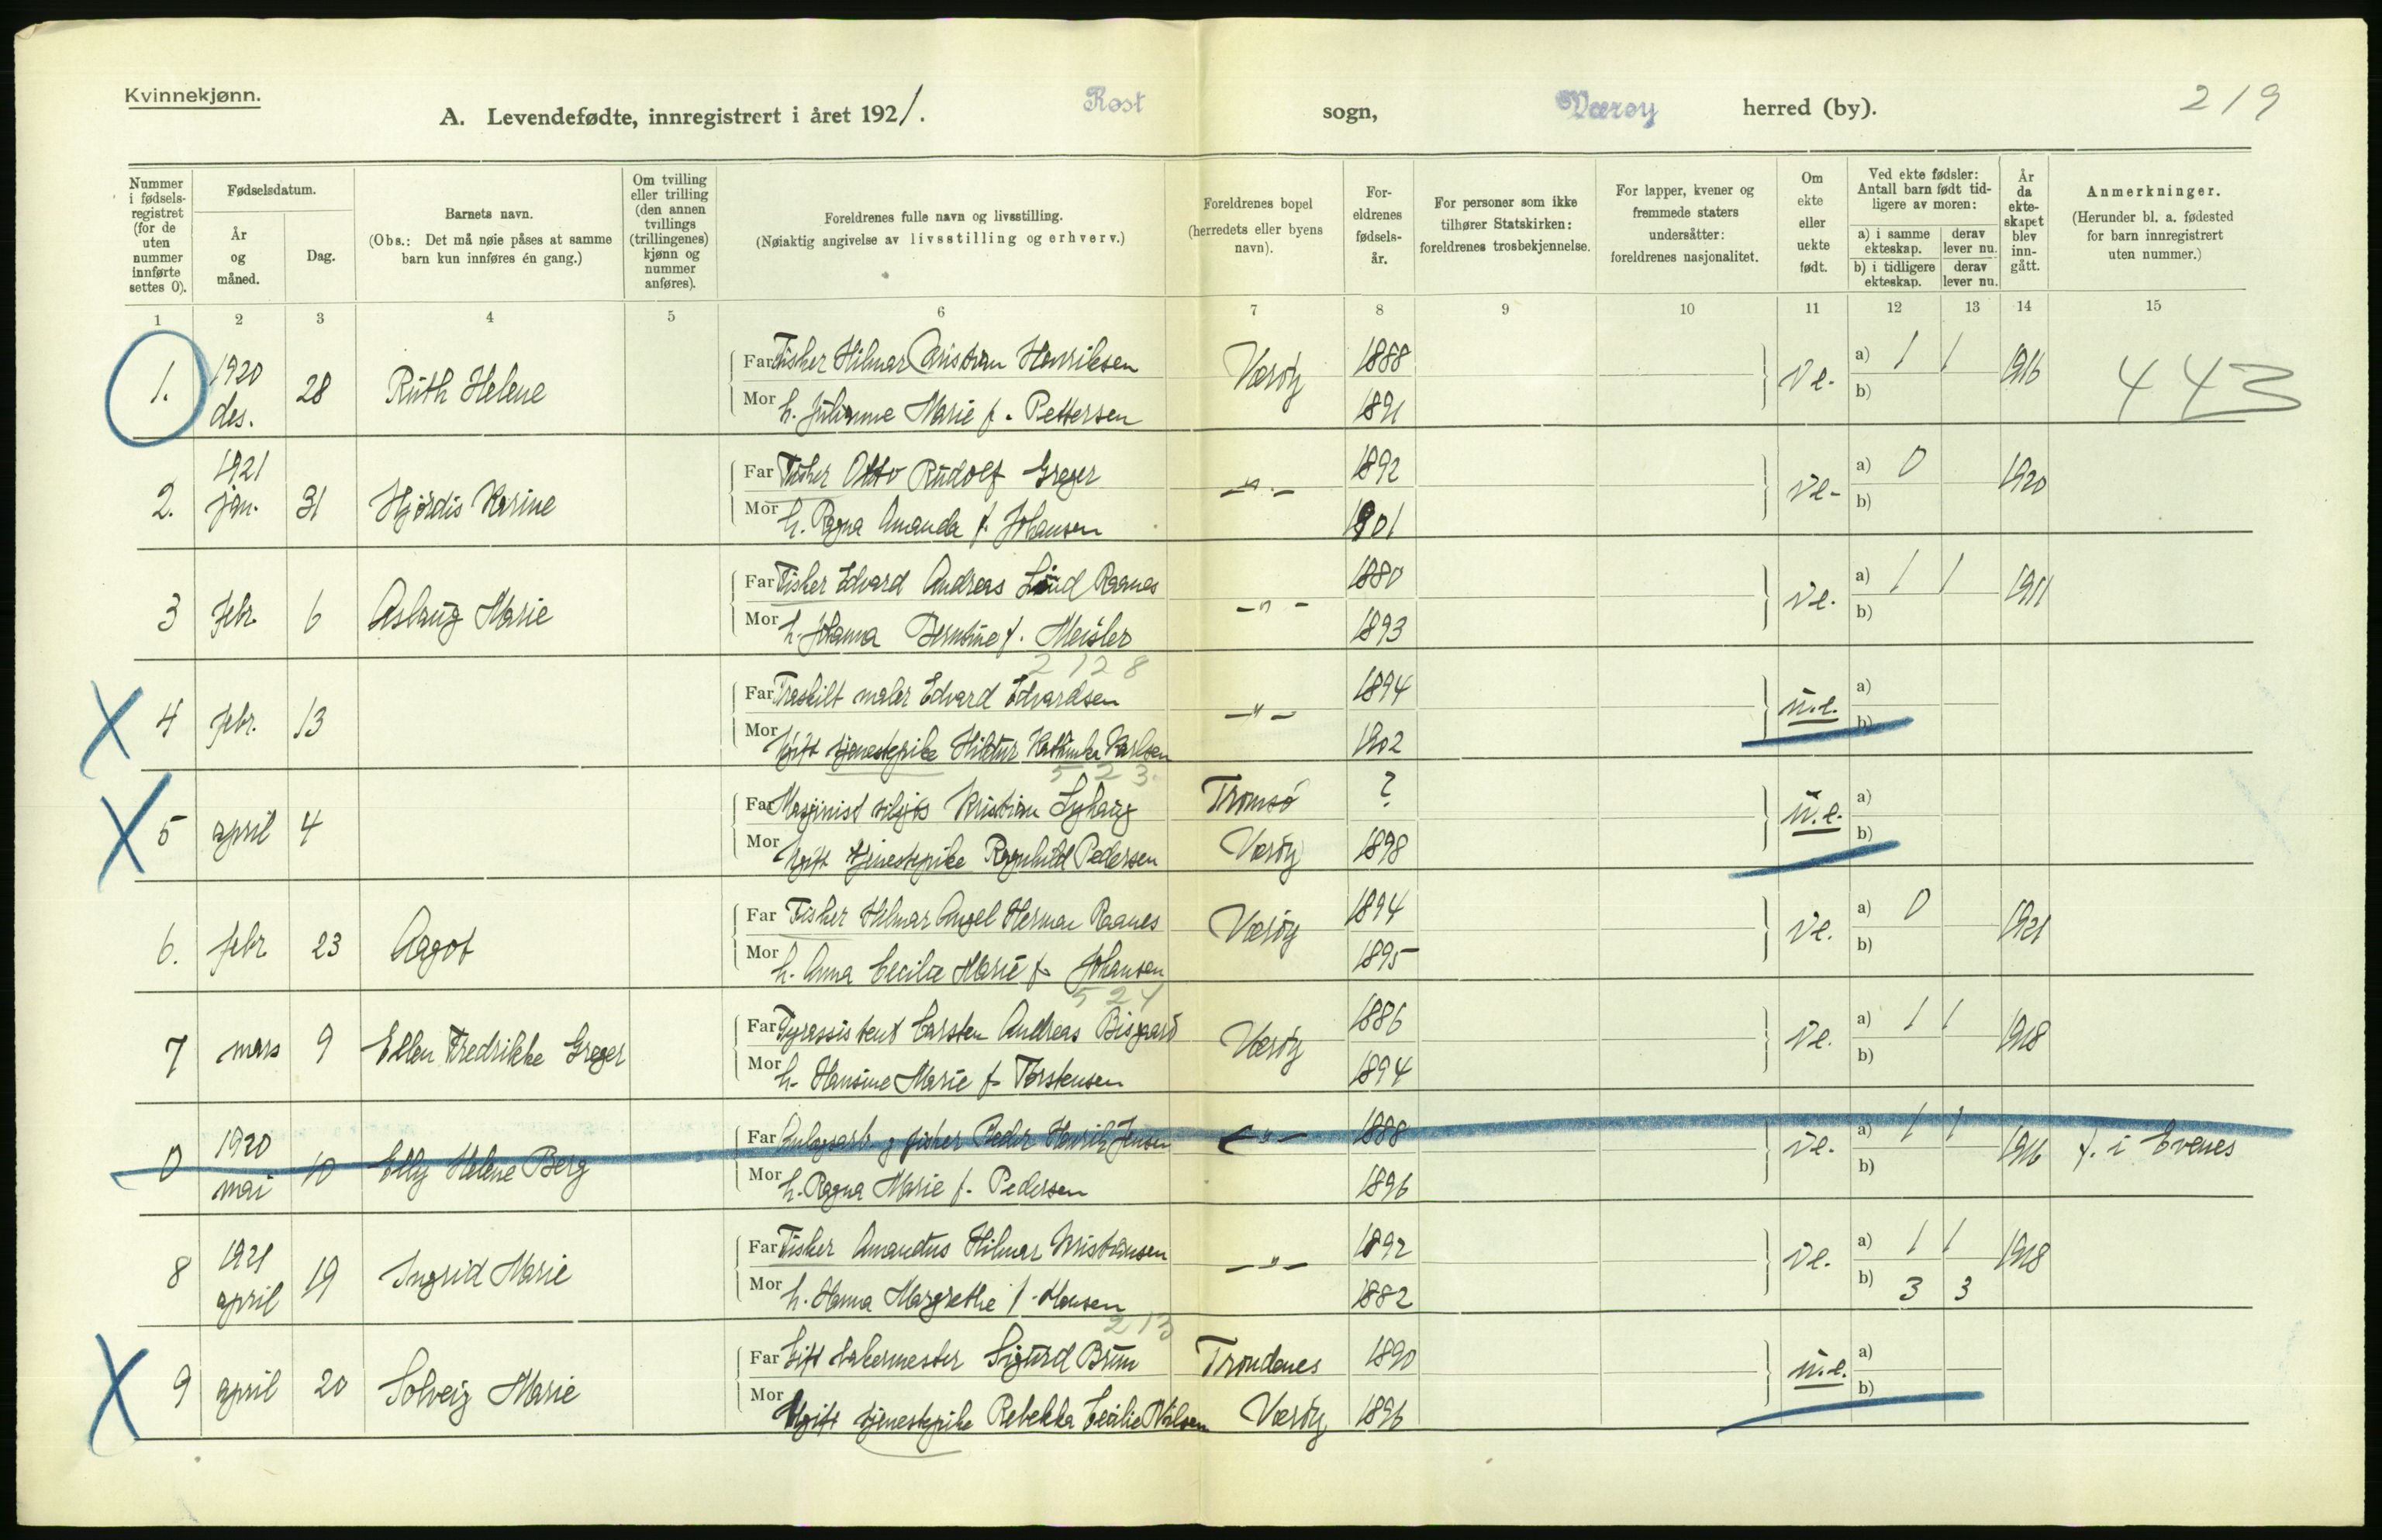 Kvinnekjønn.
A. Levendefødte, innregistrert i året 1921. Røst sogn, Værøy herred (by). 219
Nummer i fødselsregistret (for de uten nummer innførte settes 0).
Fødselsdatum.
År og måned.
Dag.
Barnets navn.
(Obs.: Det må nøie påses at samme barn kun innføres én gang.)
Om tvilling eller trilling (den annen tvillings (trillingenes) kjønn og nummer anføres).
Foreldrenes fulle navn og livsstilling.
(Nøiaktig angivelse av livsstilling og erhverv.)
Foreldrenes bopel (herredets eller byens navn).
Foreldrenes fødselsår.
For personer som ikke tilhører Statskirken: foreldrenes trosbekjennelse.
For lapper, kvener og fremmede staters undersåtter: foreldrenes nasjonalitet.
Om ekte eller uekte født.
Ved ekte fødsler: Antall barn født tidligere av moren:
a) i samme ekteskap. derav lever nu.
b) i tidligere ekteskap. derav lever nu.
År da ekteskapet blev inngått.
Anmerkninger.
(Herunder bl. a. fødested for barn innregistrert uten nummer.)
1 2 3 4 5 6 7 8 9 10 11 12 13 14 15
1. 1920 des. 28 Ruth Helene Far Fisker Hilmar Kristian Henriksen Værøy 1888 ve. a) 1 1 1916 443
Mor h. Julianne Marie f. Pettersen 1891 b)
2. 1921 jan. 31 Hjørdis Karine Far Fisker Otto Rudolf Greger -"- 1892 ve- a) 0 1920
Mor h. Ragna Amanda f. Johansen 1901 b)
3 febr. 6 Aslaug Marie Far Fisker Edvard Andreas Lind Raanes -"- 1880 ve. a) 1 1 1911
Mor h. Johanna Berntine f. Meisler 1893 b)
2128
4 febr. 13 Far Fraskilt maler Edvard Edvardsen -"- 1894 u.e. a)
Mor Ugift tjenestepike Hildur Karlsen 1902 b)
523
5 april 4 Far Maskinist Kristian Tromsø ? u.e. a)
Mor Ugift tjenestepike Ragnhild Pedersen Værøy 1898 b)
6. febr 23 Aagot Far Fisker Hilmar Angel Herman Raanes Værøy 1894 ve. a) 0 1921
Mor h. Anna Cecilie Marie f. Johansen 1895 b)
524
7 mars 9 Ellen Fredrikke Greger Far Fyrassistent Carsten Andreas Bisgaard Værøy 1886 ve. a) 1 1 1918
Mor h. Hansine Marie f. Torstensen 1894 b)
0 1920 mai 10 Elly Helene Berg Far Anlegsarb. og fisker Peder Henrik Jensen -"- 1888 ve. a) 1 1 1916 f. i Evenes
Mor h. Ragna Marie f. Pedersen 1896 b)
8 1921 april 19 Ingrid Marie Far Fisker Amandus Hilmar Kristiansen -"- 1892 ve. a) 1 1 1918
Mor h. Hanna Margrethe f. Hansen 1882 b) 3 3
213
9 april 20 Solveig Marie Far Gift bakermester Sigurd Brun Trondenes 1890 u.e. a)
Mor Ugift tjenestepike Rebekka Cecilie Nilsen Værøy 1896 b)